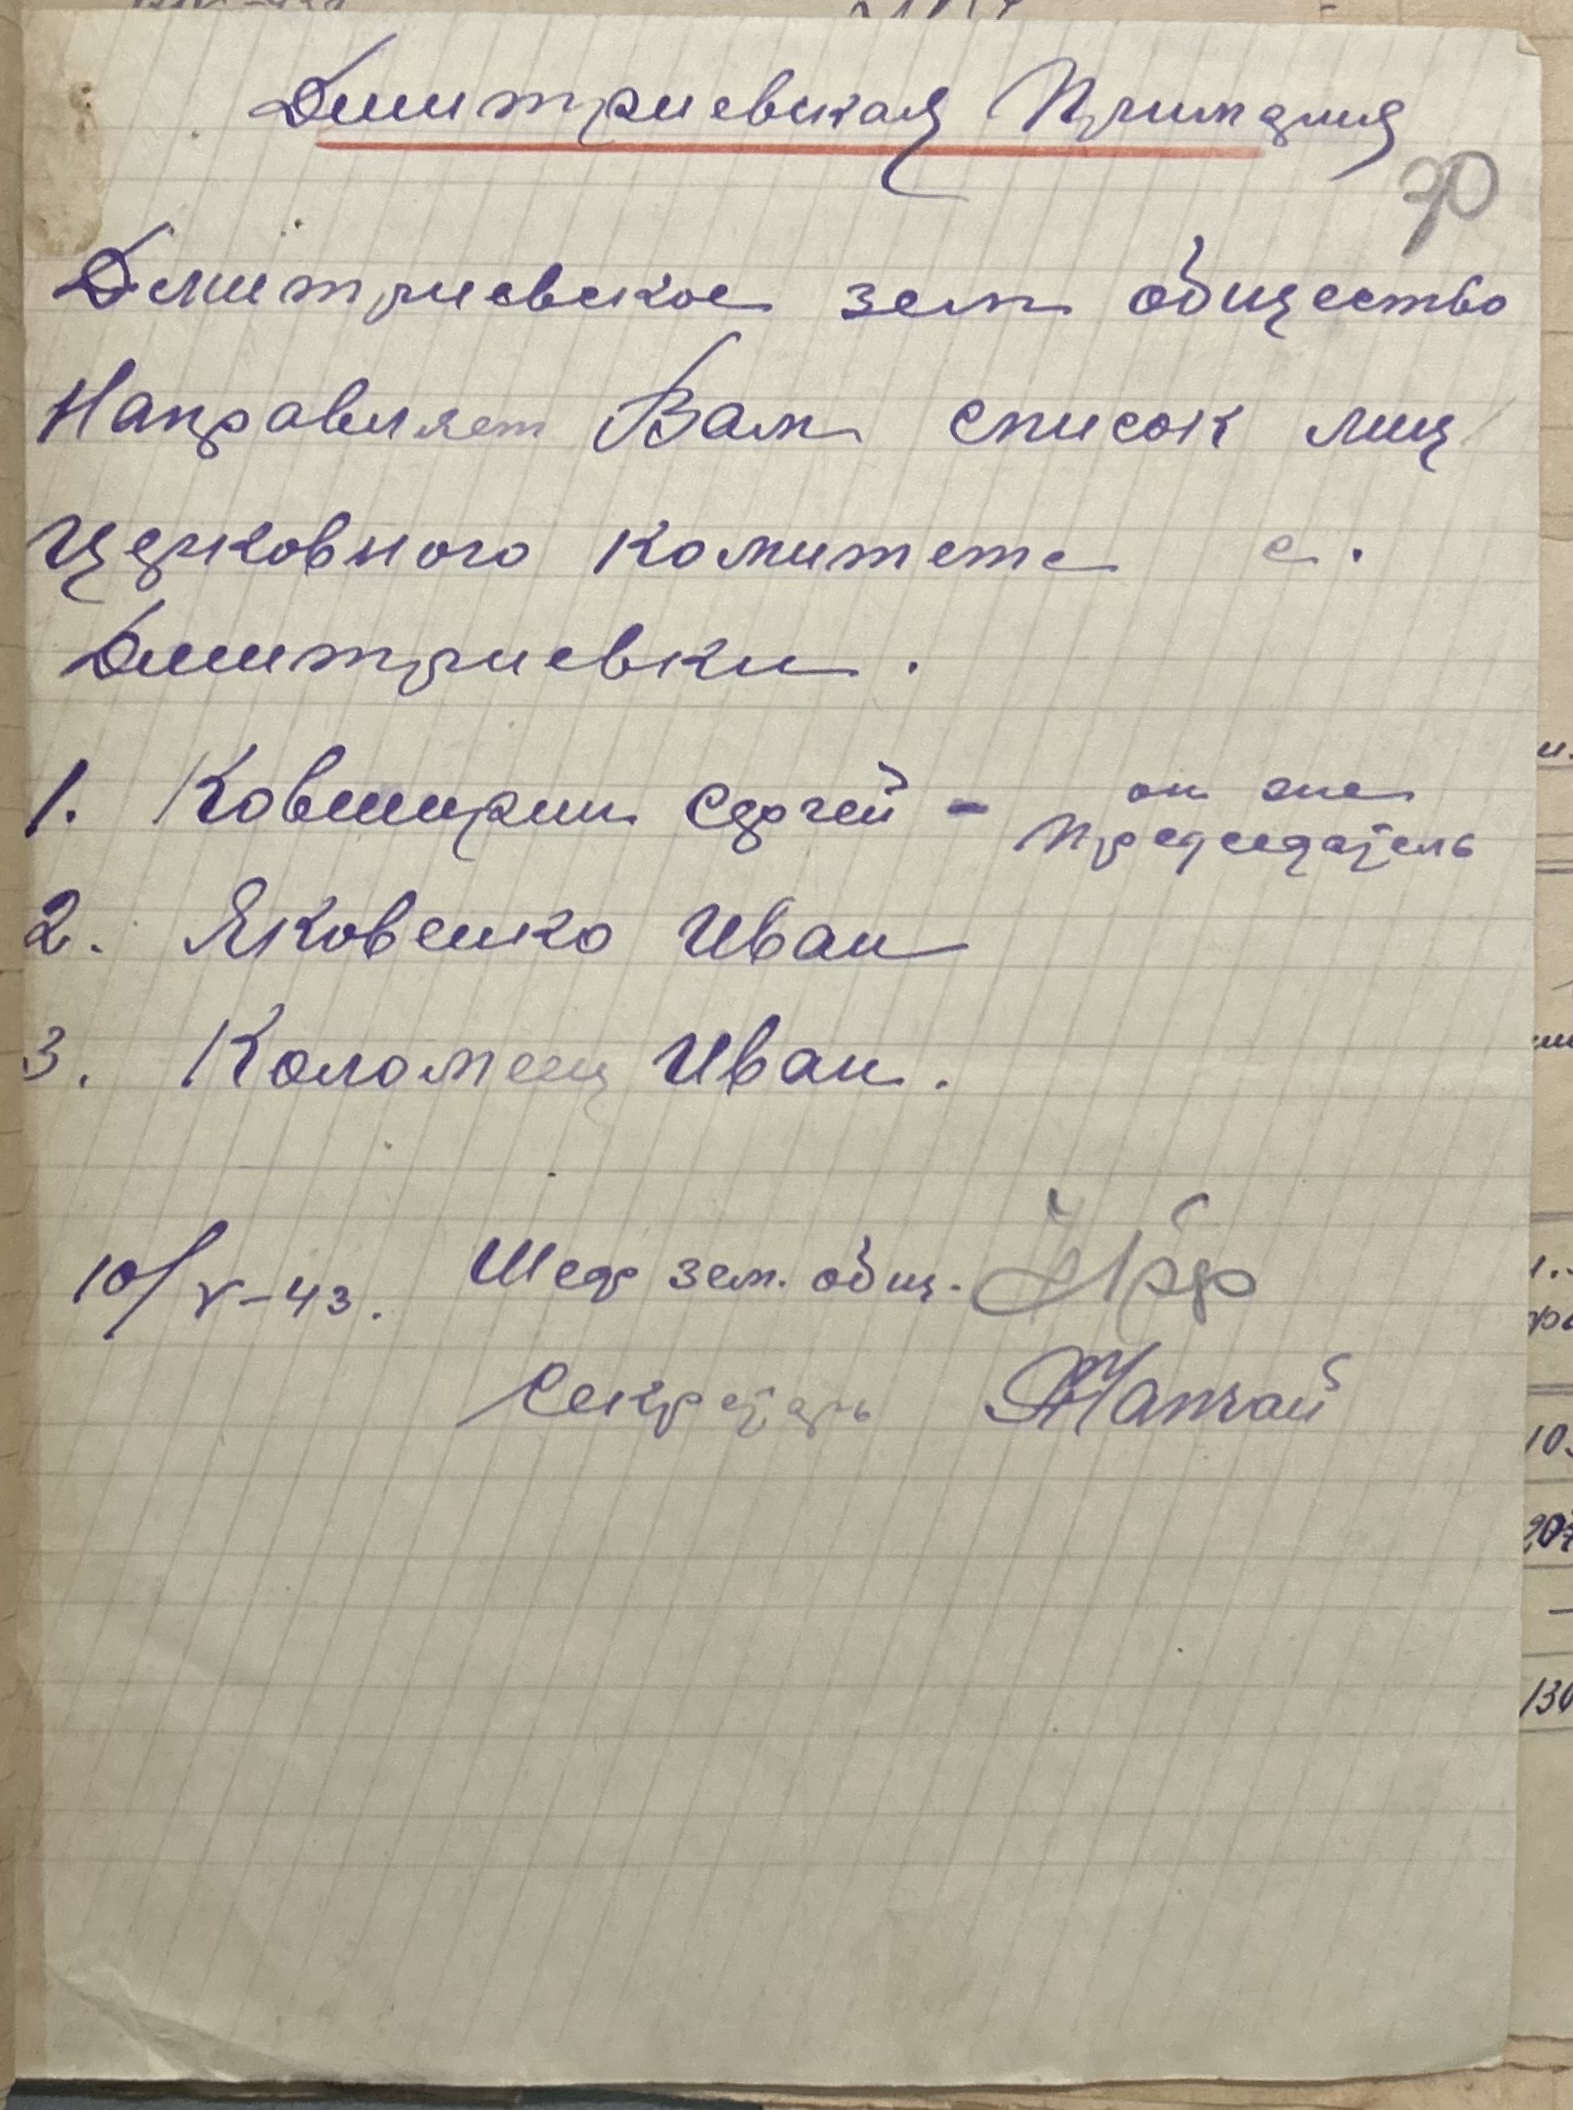 Дмитриевская Примария
70
Дмитриевское зем общество
Направляет Вам список лиц
Церковного комитета с.
Дмитриевки.
1. Ковширин Сергей - он же
Председатель
2. Яковенко Иван
3. Коломеец Иван.
10/V-43. Шеф зем. общ.
Секретарь